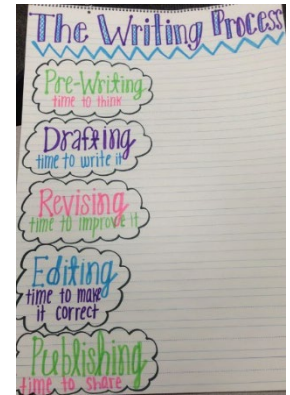 The Writing Process
Pre-Writing
time to think
Drafting
time to write it
Revising
time to improve it
Editing
time to make
it correct
Publishing
time to share